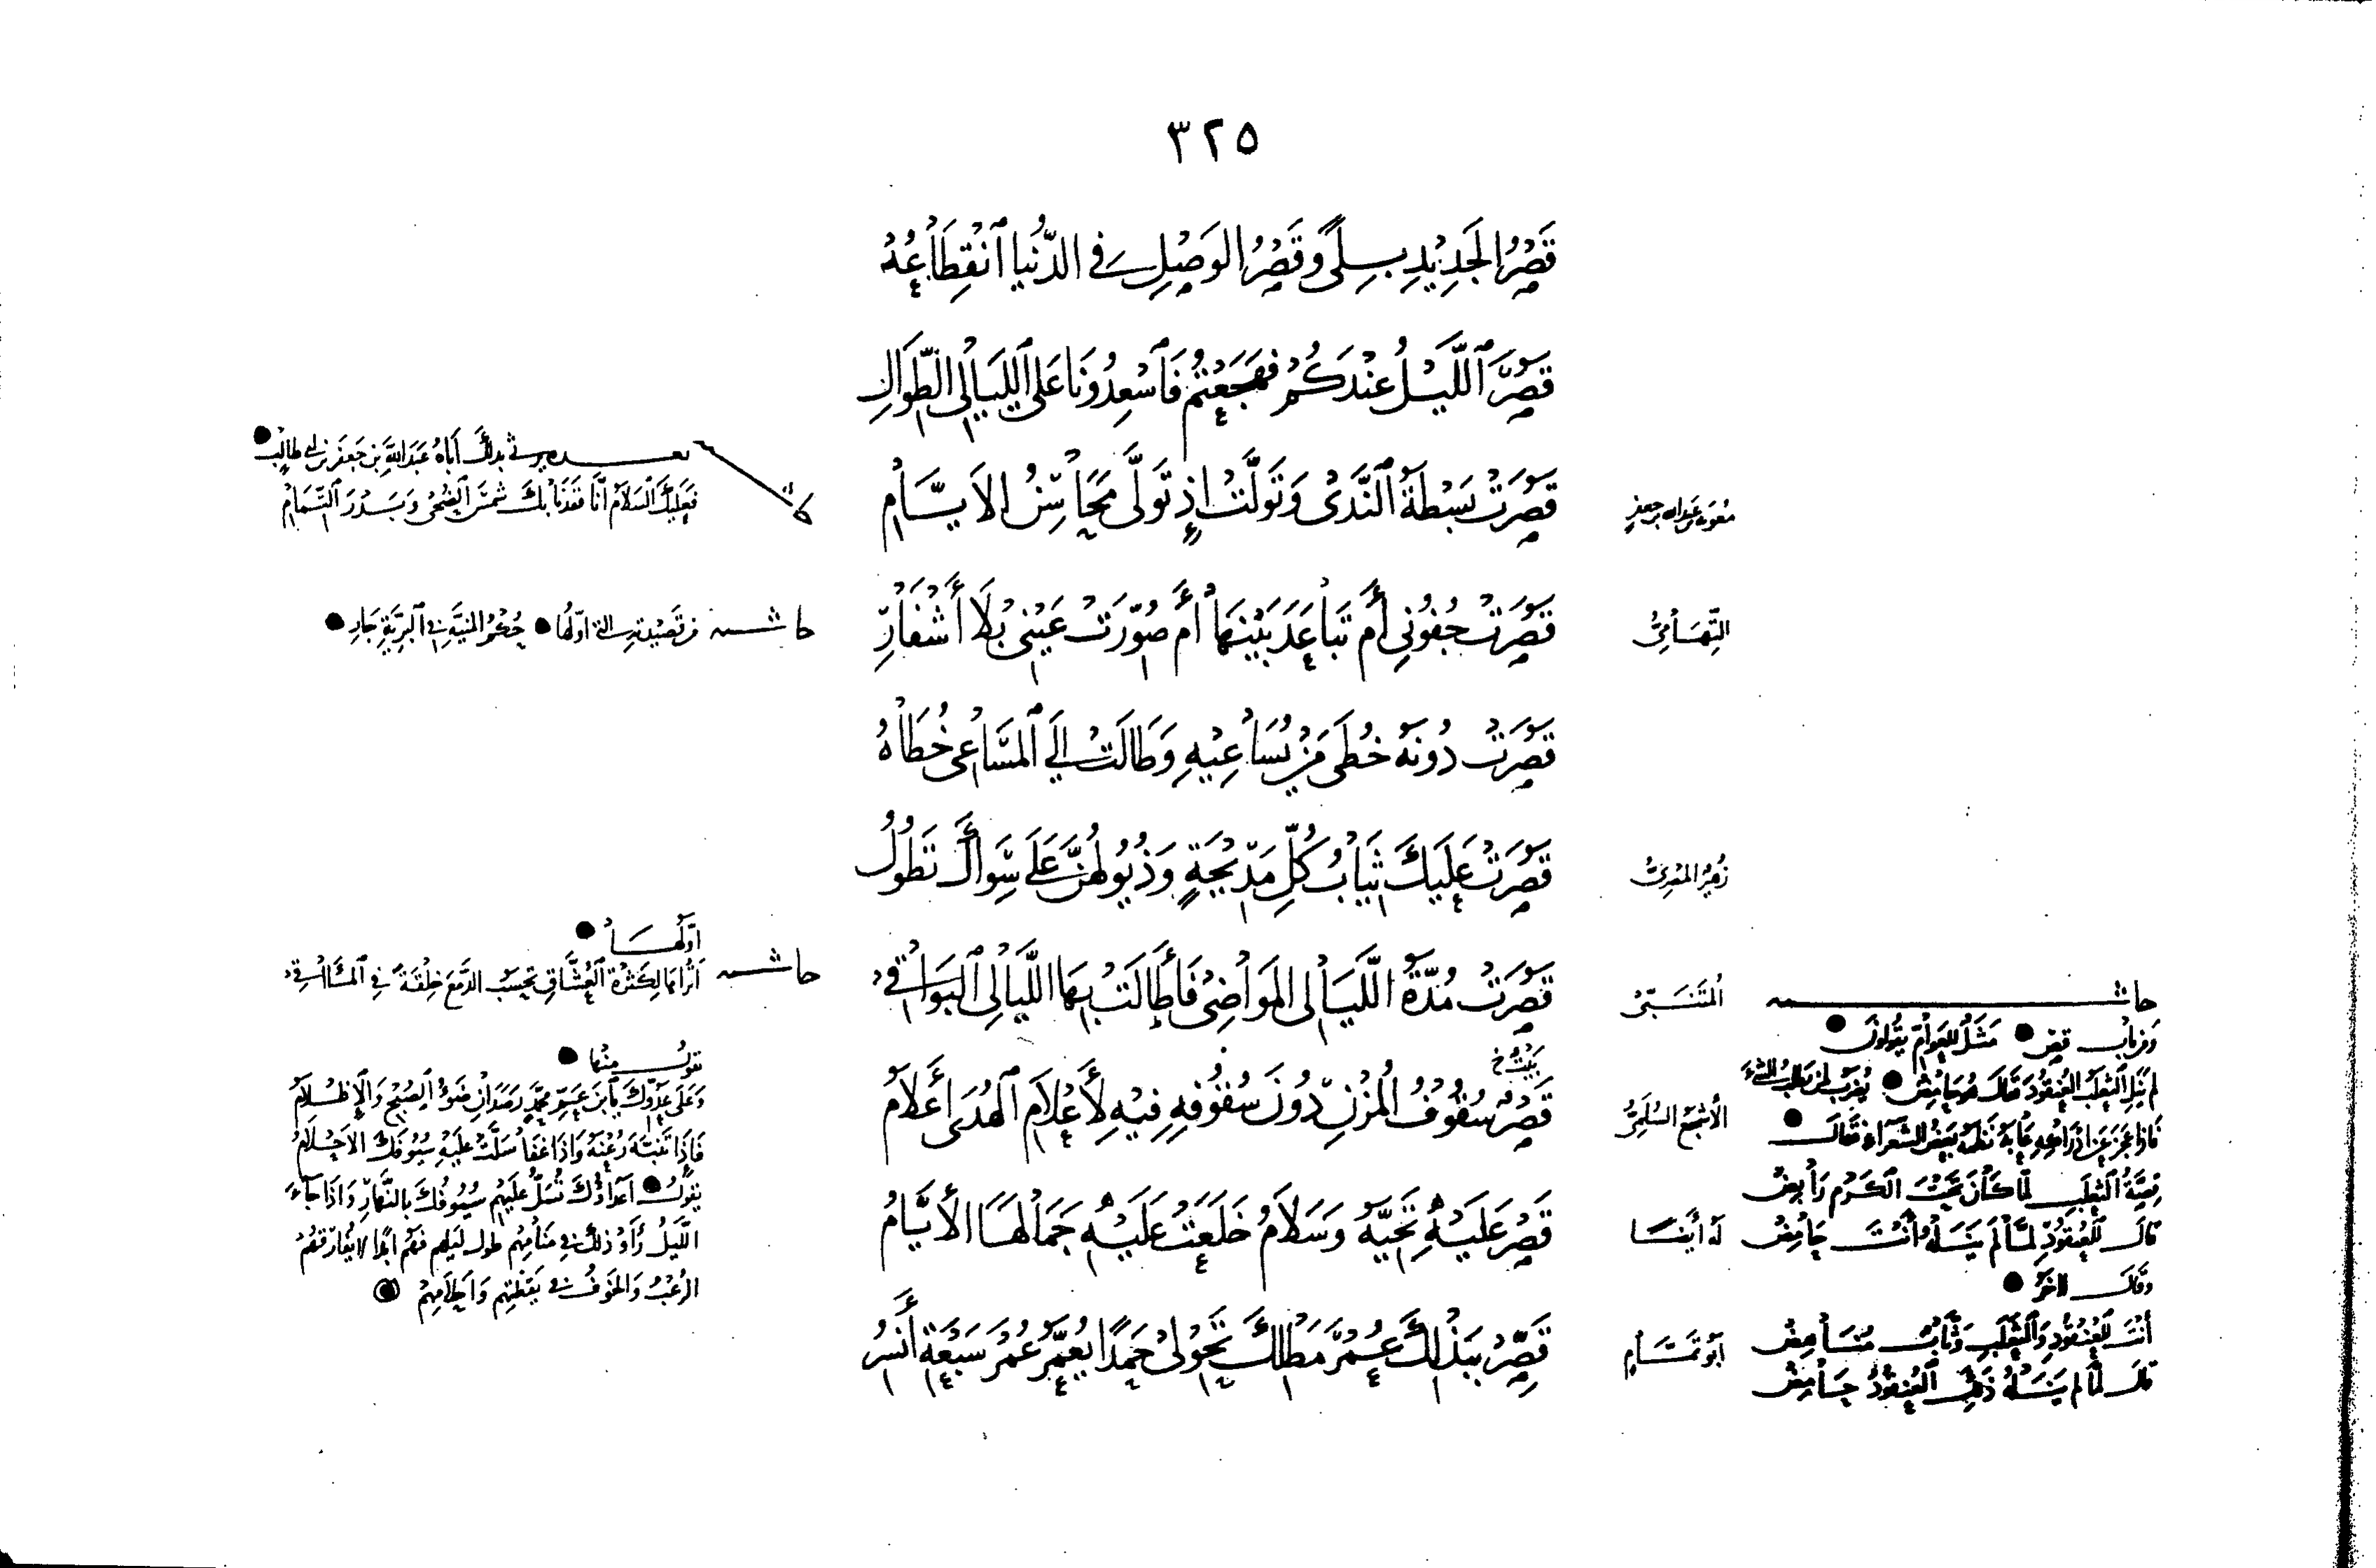 ٣٢٥
قَصْرُ الجَدِيْدِ بِلىً وَقَصْرُ الوَصِيْلِ فِي الدُّنْيا اَنْقِطَاعُهُ
قَصُرَ اَللَّيْلُ عِنْدَكُمْ فَهَجَعْتُمْ فَاَسْعِدُوْنَا عَلَى اللَّيَالِي الطِّوَالِ
معوية بن عبد الله بن جعفر
قَصُرَتْ بَسْطَةُ اَلنَّدَى وَتَوَلَّتْ اِذ تَوَلَّى مَحَاسِنُ الاَيَّامِ
بعده يرثي بذلك أباه عبد الله بن جعفر بن أبي طالب
فَعَلَيْكَ اَلسَلاَمُ اَنَّا فَقَدْنَا بِكَ شَمْسَ اَلضُحَى وَبَدْرَ اَلتَّمَامِ
التِّهَامِيُّ
قَصُرَتْ جُفُوْنِي أَمْ تَبَاعَدَ بَيْنَهَا أَمْ صُوِّرَتْ عَيْنِي بِلَا أَشْفَارِ
حاشية من قصيدته التي أولها حُكْمُ المَنِيَّةِ فِي اَلْبَرِيَّةِ جَارِ
قَصُرَتْ دُوْنَهُ خُطَى مَنْ يُسَاعِيْهِ وَطَالَتْ اِلَى اَلْمَسَاعِي خُطَاهُ
زُهَيْرُ المِصْرِيُّ
قَصُرَتْ عَلَيْكَ ثِيَابُ كُلِّ مَدِيْحَةٍ وَذُيُوْلُهُنَّ عَلَى سِوَاكَ تَطُوْلُ
المُتَنَبِّي
قَصُرَتْ مُدَّةُ اللَّيَالِي المَوَاضِي فَأَطَالَتْ بِهَا اللَّيَالِي اَلْبَوَاقِي
حاشية
أوّلُهَا
أَتُرَاهَا لِكَثْرَةِ اَلْعُشَّاقِ تَحْسَبُ الدَّمْعَ خِلْقَةً فِي اَلْمَآقِي
الأَشْجَعُ السُّلَمِيُّ
بَيْتُ
قَصْرٌ سُقُوْفُ اَلْمُزْنِ دُوْنَ سُقُوْفِهِ فِيْهِ لِأَعْلاَمِ اَلْهُدَى أَعْلاَمُ
يقول منها
وَعَلَى عَدُوِّكَ يَا ابْنَ عَمِّ مُحَمَّدٍ رَصَدَانِ ضَوْءُ اَلصُّبْحِ وَالْإِظْلاَمُ
فَإِذَا تَنَبَّهَ رُعْتَهُ وَاِذَا غَفَا سَلَّتْ عَلَيْهِ سُيُوْفَكَ الأَحْلاَمُ
يقول أعداؤك تُسَلُّ عليهم سُيُوفُكَ بالنَّهَارِ وَاذَا جَاءَ
اللَّيْلُ رَأَوْ ذلك في منامهم طول ليلهم فهم أبدًا لا يفارقهم
الرُعْبُ وَالخَوْفُ في يقظتهم وأحلامهم
لَهُ أَيْضًا
قَصْرٌ عَلَيْهِ تَحِيَّةٌ وَسَلاَمُ خَلَعَتْ عَلَيْهِ جَمَالَهَا الأَيَّامُ
أبو تَمَّامٍ
قَصِّرْ بِبَذْلِكَ عُمْرَ مَطْلِكَ تَحْوِ لِي حَمْدًا يُعَمَّرُ عُمْرَ سَبْعَةِ أَنْسُرِ
حاشية
وَمِنْ بَاب قصر مَثَلٌ للعَوَامّ يقولون
لم يَنَلِ الثعلبُ العُنْقُودَ قال هو حامض يُضرب لمن يطلب الشيء
فاذا عجز عن ادراكه عابه نظمه بعض الشعراء فقال
قال للعُنْقُوْدِ لَمَّا لَمْ يَنَلْهُ أَنْتَ حَامِضْ
وقال آخر
قال لَمَّا لَمْ يَنَلْهُ ذلك العُنْقُوْدُ حَامِضْ